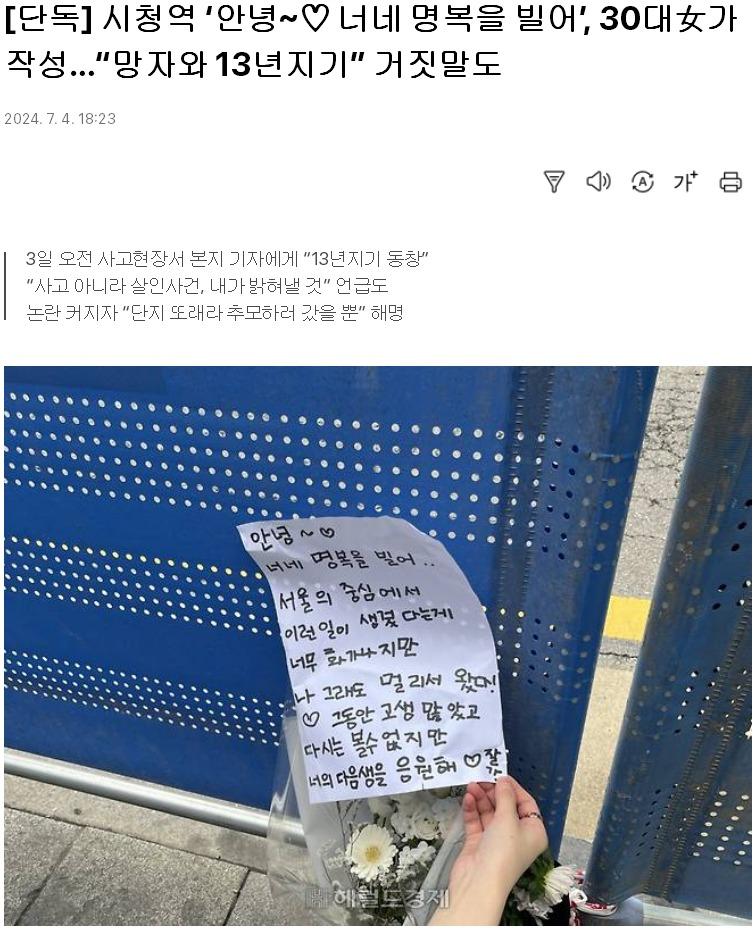 [단독] 시청역 ‘안녕~♡ 너네 명복을 빌어’, 30대女가
작성…“망자와 13년지기” 거짓말도
2024. 7. 4. 18:23
가+
3일 오전 사고현장서 본지 기자에게 “13년지기 동창”
“사고 아니라 살인사건, 내가 밝혀낼 것” 언급도
논란 커지자 “단지 또래라 추모하러 갔을 뿐” 해명
안녕~♡
너네 명복을 빌어..
서울의 중심에서
이런일이 생겼 다는게
너무 화가나지만
나 그래도 멀리서 왔다!
♡ 그동안 고생 많았고
다시는 볼수 없지만
너의 다음생을 응원해 ♡ 잘가
헤럴드경제